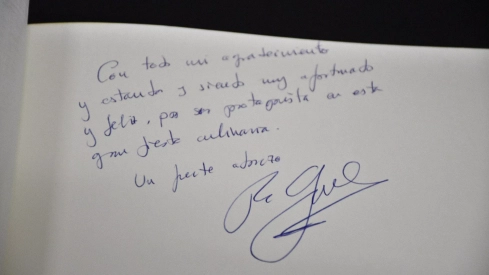 Con todo mi agradecimiento
y estando y siendo muy afortunado
y feliz, por ser protagonista en esta
gran fiesta culinaria.
Un fuerte abrazo